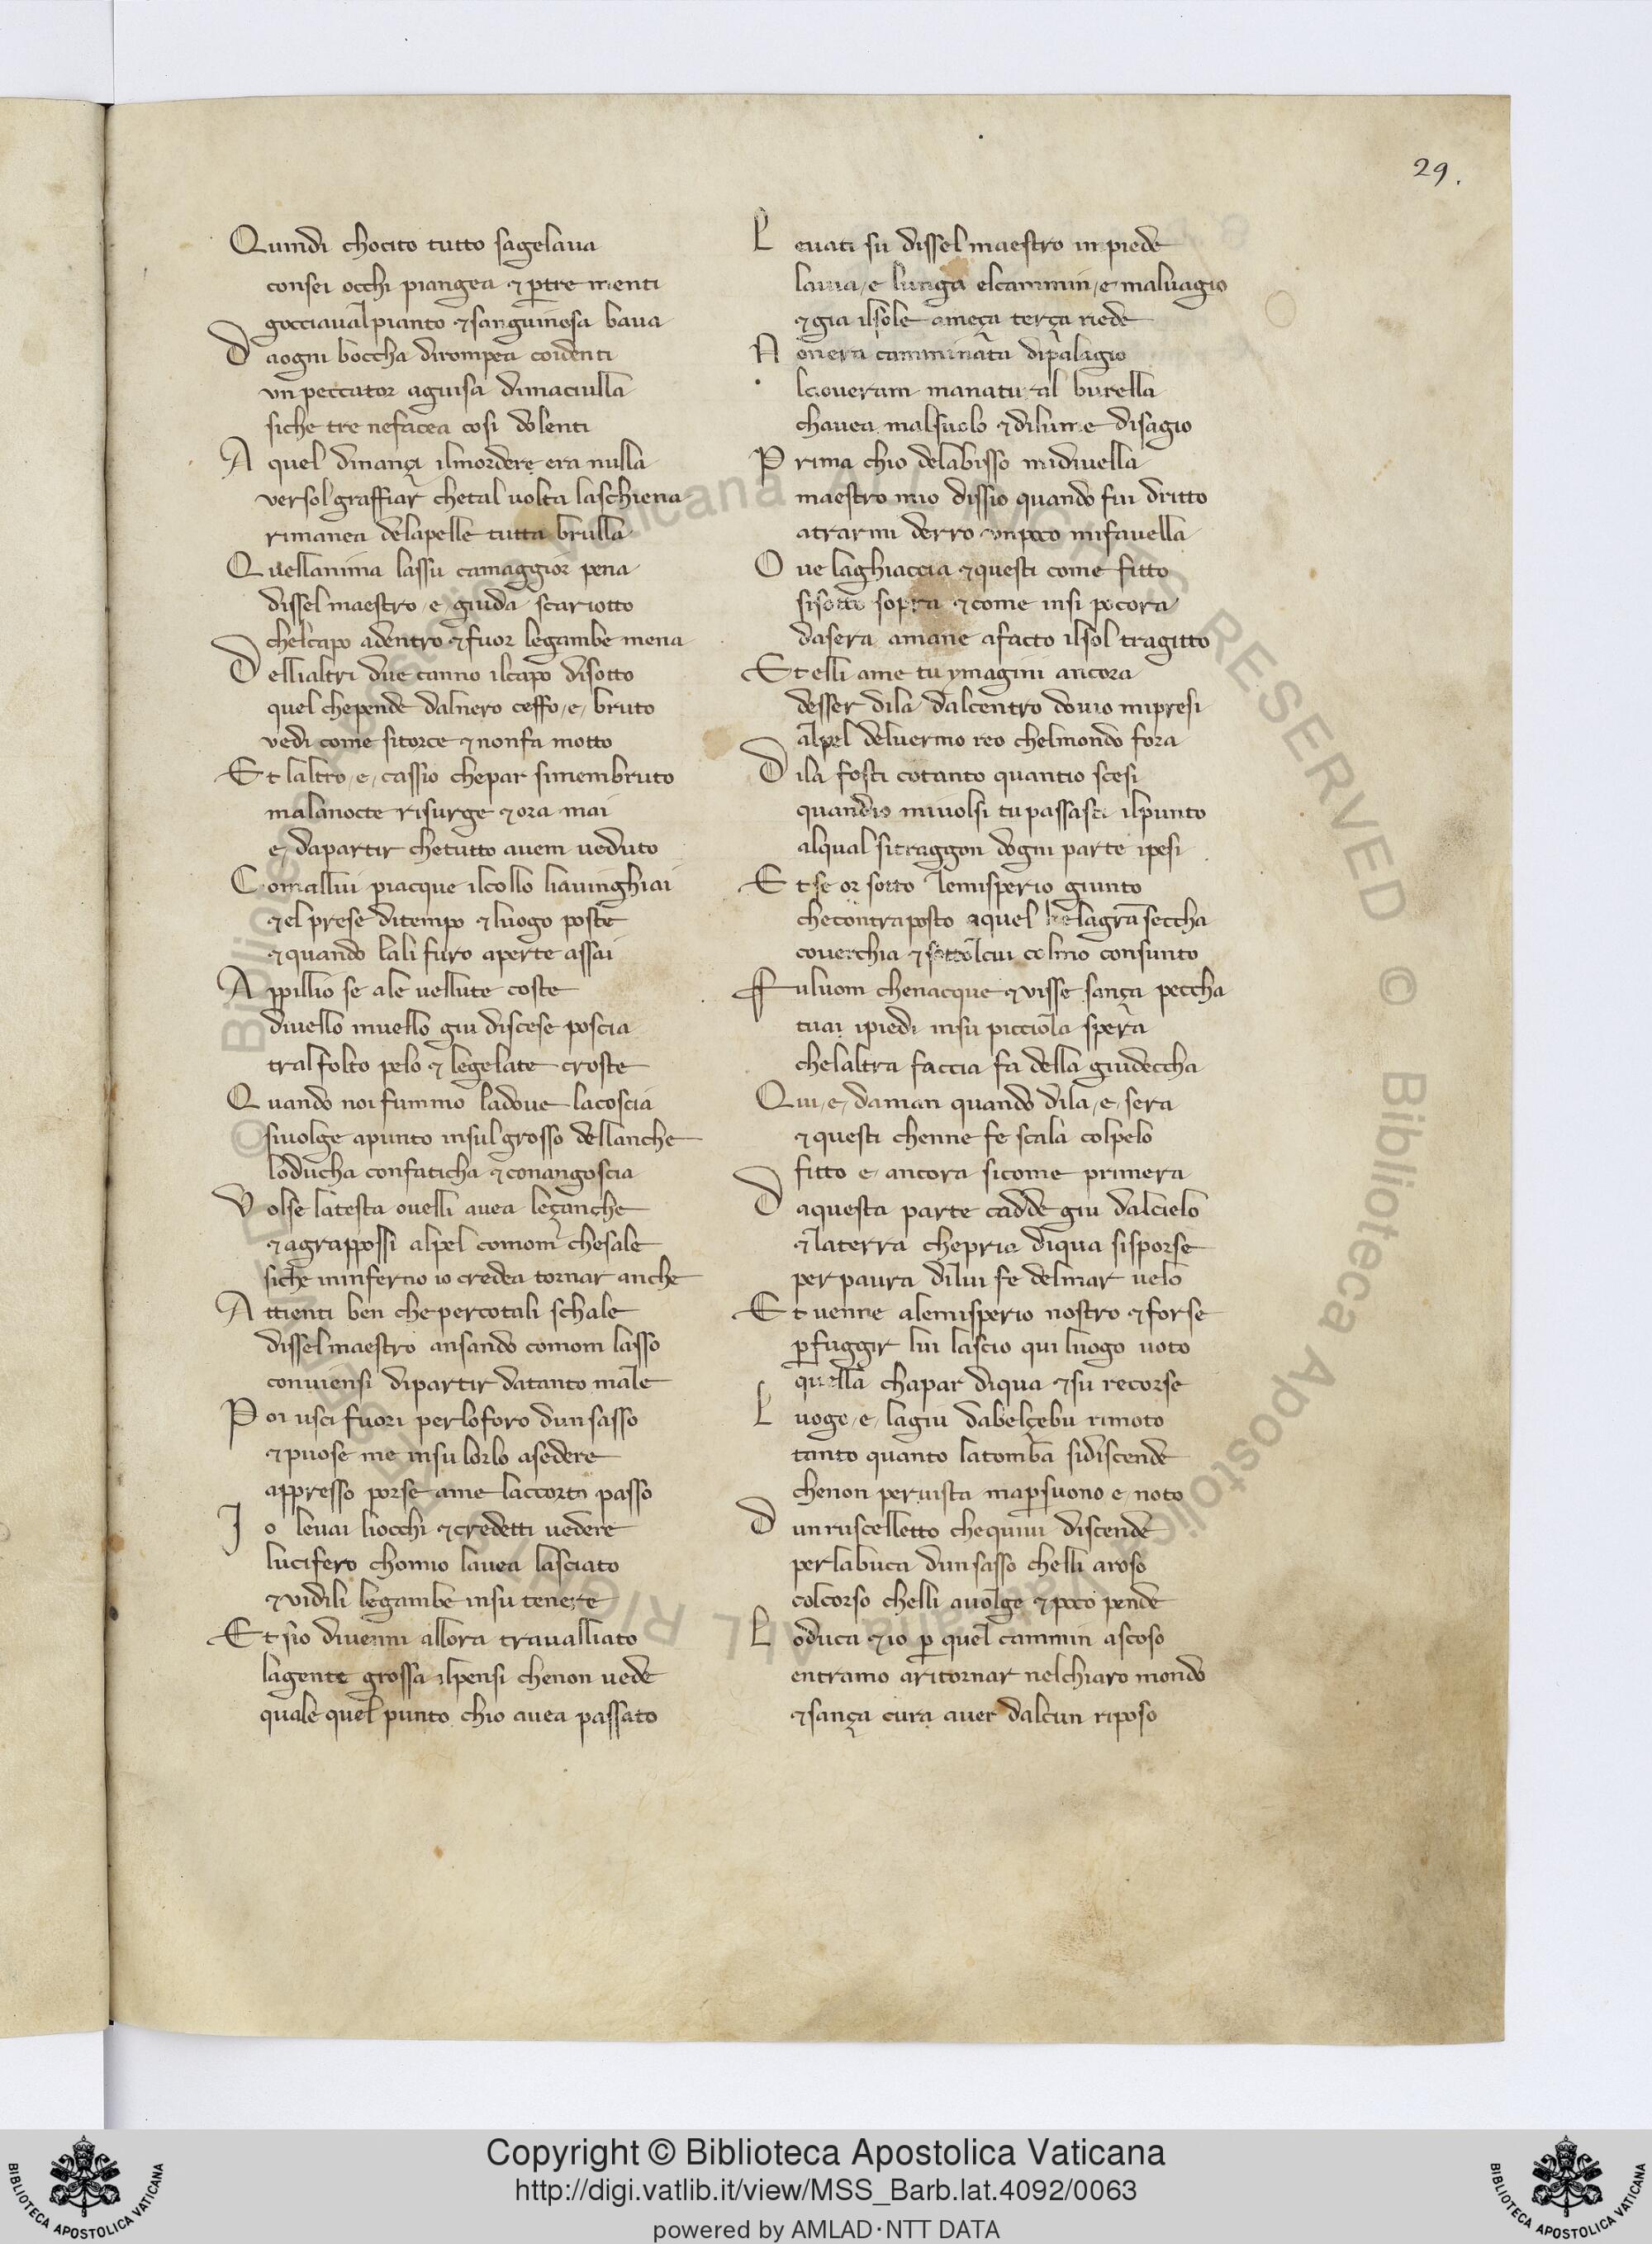 29.
Quindi chocito tutto sagelaua
consei occhi piangea ⁊ ꝑtre menti
gocciaual pianto ⁊ sanguinosa baua
D aogni boccha dirompea coidenti
vn peccator aguisa dimaciulla
siche tre nefacea cosi dolenti
A quel dinançi ilmordere era nulla
versol graffiar chetal uolta laschiena
rimanea delapelle tutta brulla
Quellanima lassu camaggior pena
dissel maestro e giuda scariotto
chelcapo adentro ⁊ fuor legambe mena
D ellialtri due canno ilcapo disotto
quel chepende dalnero ceffo e bruto
vedi come sitorce ⁊ nonfa motto
Et laltro e cassio chepar simembruto
malanocte risurge ⁊ ora mai
e dapartir chetutto auem ueduto
Comallui piacque ilcollo liauinghiai
⁊ el prese ditempo ⁊ luogo poste
⁊ quando lali furo aperte assai
A ppillio se ale uellute coste
diuello inuello giu discese poscia
tralfolto pelo ⁊ legelate croste
Quando noi fummo ladoue lacoscia
siuolge apunto insul grosso dellanche
loducha confaticha ⁊ conangoscia
V olse latesta ouelli auea leçanche
⁊ agrappossi alpel comom chesale
siche ninferno io credea tornar anche
A ttienti ben che percotali schale
dissel maestro ansando comom lasso
conuiensi dipartir datanto male
P oi usci fuori perloforo dunsasso
⁊ puose me insu lorlo asedere
appresso porse ame laccorto passo
J o leuai liocchi ⁊ credetti uedere
lucifero chomio lauea lasciato
⁊ vidili legambe insu tenere
Et sio diuenni allora traualliato
lagente grossa ilpensi chenon uede
quale quel punto chio auea passato
L euati su dissel maestro inpiede
lauia e lunga elcammin e maluagio
⁊ gia ilsole ameça terça riede
N onera camminata dipalagio
laoueram manatural burella
chauea malsuolo ⁊ dilume disagio
P rima chio delabisso midiuella
maestro mio dissio quando fui dritto
atrarmi derro vnpoco mifauella
O ue laghiaccia ⁊ questi come fitto
sisotto sopra ⁊ come insi pocora
dasera amane afacto ilsol tragitto
Et elli ame tu ymagini ancora
desser dila dalcentro douio mipresi
alpel deluermo reo chelmondo fora
D ila fosti cotanto quantio scesi
quandio miuolsi tu passasti ilpunto
alqual sitraggon dogni parte ipesi
Et se or sotto lemisperio giunto
checontraposto aquel chelagrā seccha
couerchia ⁊ sottolcui colmo consunto
Ff uluom chenacque ⁊ uisse sança peccha
tuai ipiedi insu picciola spera
chelaltra faccia fa della giudeccha
Qui e daman quando dila e sera
⁊ questi chenne fe scala colpelo
fitto e ancora sicome primera
D aquesta parte cadde giu dalcielo
⁊ laterra chepria diqua sisporse
per paura dilui fe delmar uelo
Et uenne alemisperio nostro ⁊ forse
ꝑfuggir lui lascio qui luogo uoto
quella chapar diqua ⁊ su recorse
L uogo e lagiu dabelçebu rimoto
tanto quanto latomba sidiscende
chenon peruista maꝑsuono e noto
D unruscelletto chequiui discende
perlabuca dunsasso chelli aroso
colcorso chelli auolge ⁊ poco pende
L oduca ⁊ io ꝑ quel cammin ascoso
entramo aritornar nelchiaro mondo
⁊ sança cura auer dalcun riposo
© Biblioteca Apostolica Vaticana ALL RIGHTS RESERVED
Copyright © Biblioteca Apostolica Vaticana
http://digi.vatlib.it/view/MSS_Barb.lat.4092/0063
powered by AMLAD·NTT DATA
BIBLIOTECA APOSTOLICA VATICANA
BIBLIOTECA APOSTOLICA VATICANA